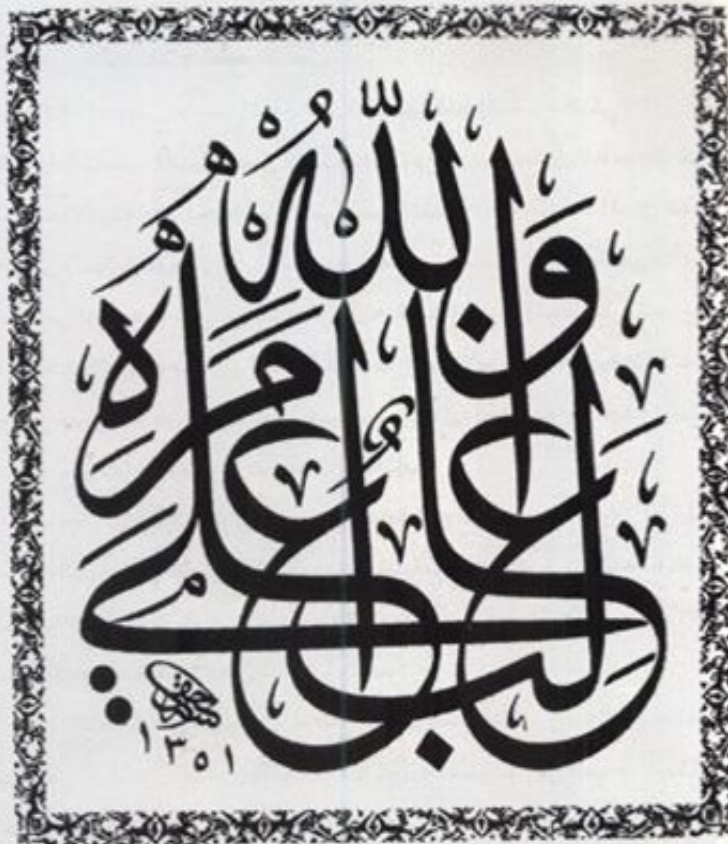 وَاللّٰهُ غَالِبٌ عَلٰى اَمْرِهٖ
١٣٥١